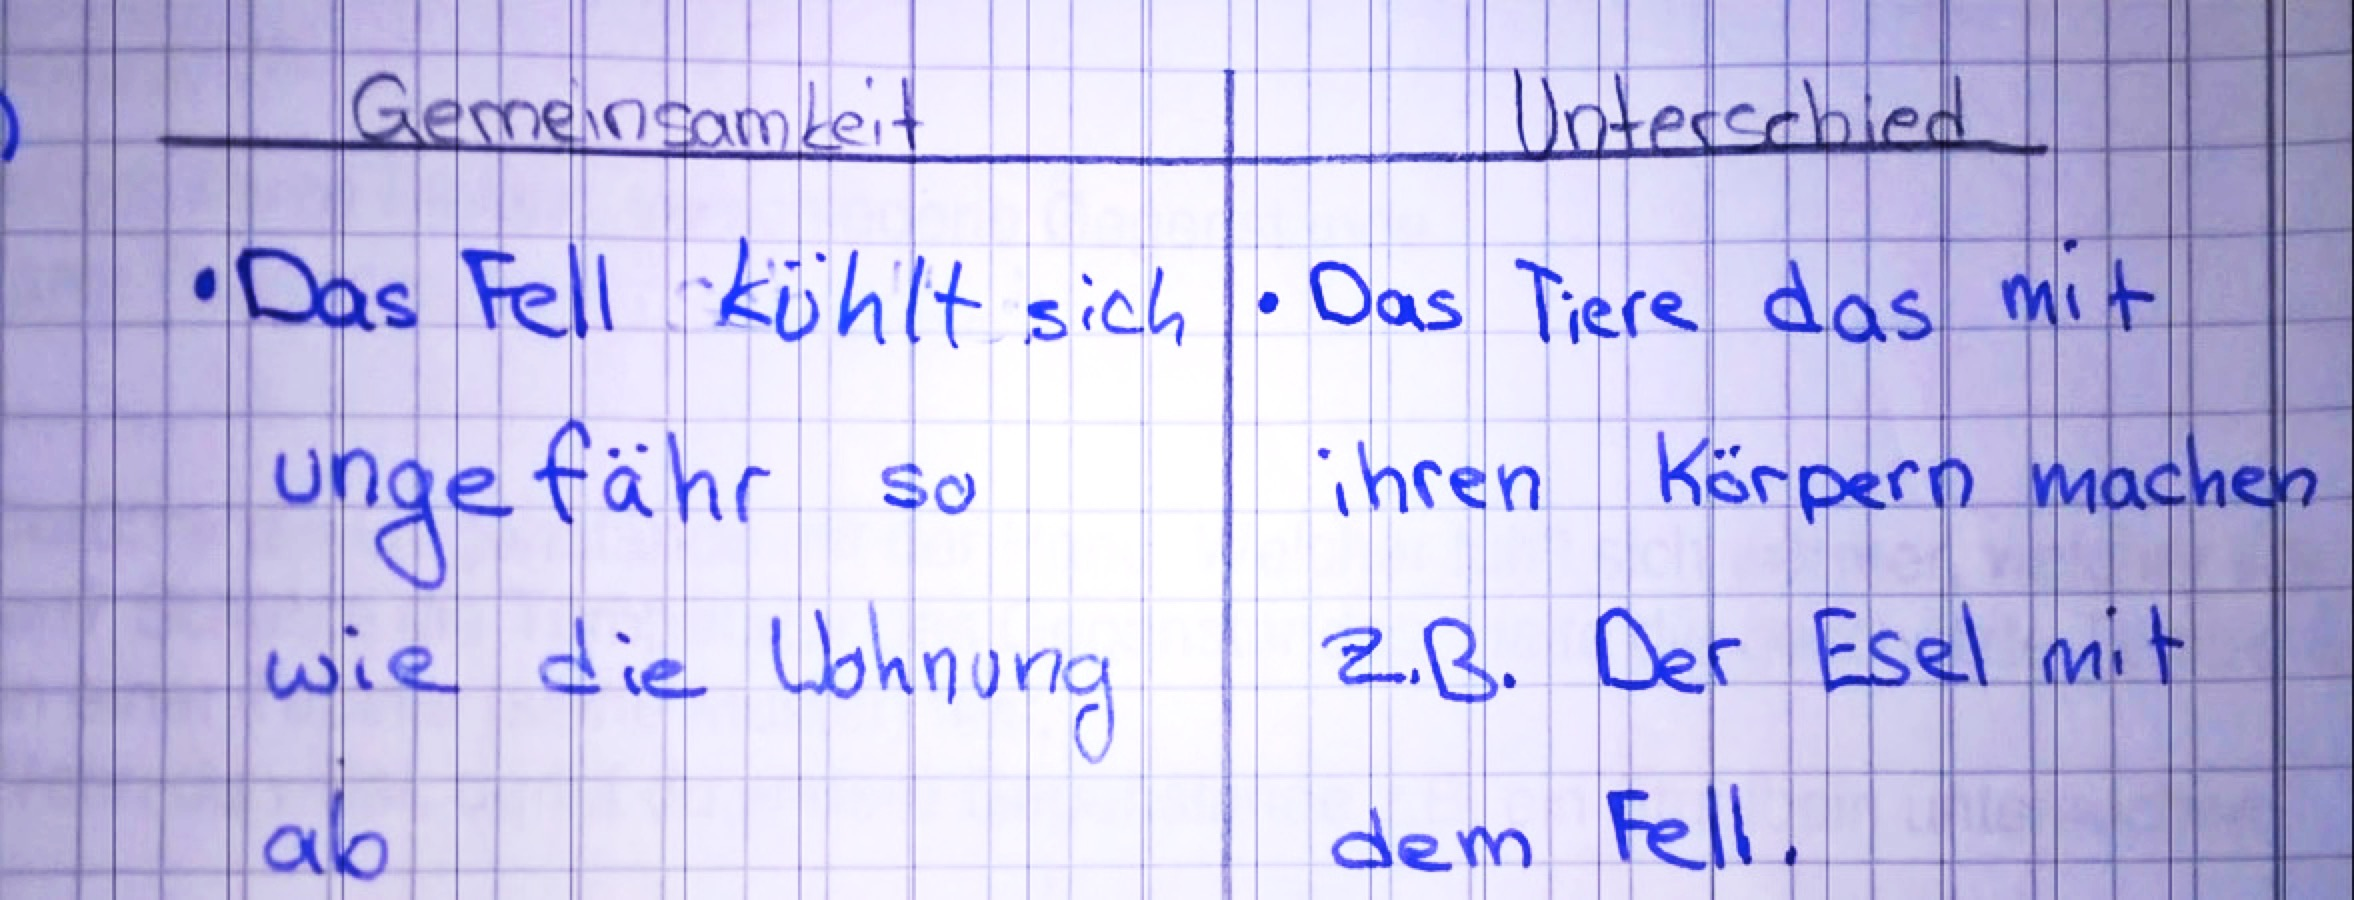 Gemeinsamkeit
Unterschied
• Das Fell kühlt sich
ungefähr so
wie die Wohnung
ab
• Das Tiere das mit
ihren Körpern machen
z.B. Der Esel mit
dem Fell.